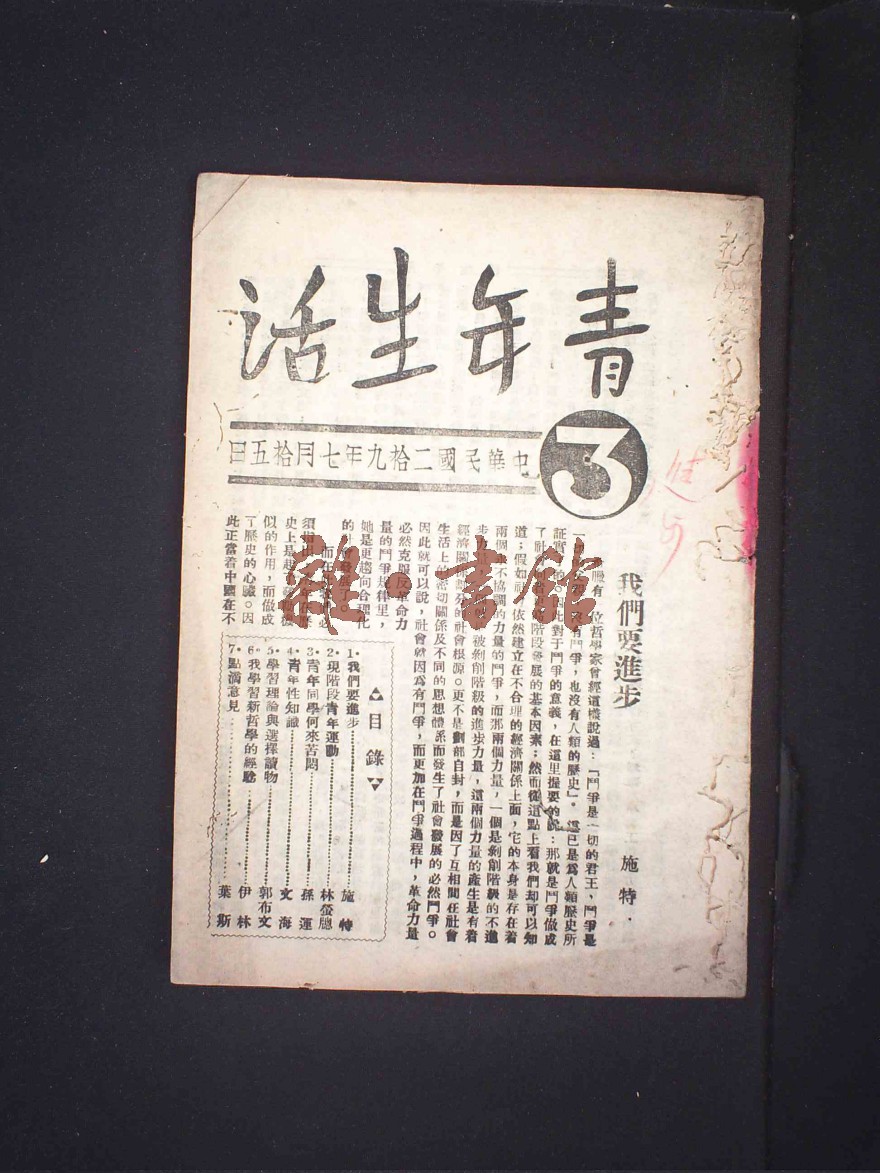 青年生活
3
中華民國二拾九年七月拾五日
我們要進步
施特·
有一位哲學家曾經這樣說過:「鬥爭是一切的君王,鬥爭是
有鬥爭,也沒有人類的歷史」。這已是爲人類歷史所
証實
對于鬥爭的意義,在這里握要的說:那就是鬥爭做成
了社會
階段發展的基本因素;然而從這點上看我們却可以知
道;假如社
依然建立在不合理的經濟關係上面,它的本身是存在着
兩個
不協調的力量的鬥爭,而那兩個力量,一個是剝削階級的不進
步力量
被剝削階級的進步力量,這兩個力量的產生是有着
經濟關係
列的社會根源。更不是劃部自封,而是因了互相間在社會
生活上的密切關係及不同的思想體系而發生了社會發展的必然鬥爭。
因此就可以說,社會就因爲有鬥爭,而更加在鬥爭過程中,革命力量
必然克服反革命力
量的鬥爭規律里,
她是更趨向合理化
的社會發展了。
而在
必
須指出
年在歷
史上是起
似的作用,而做成
了歷史的心臟。因
此正當着中國在不
目錄
1·我們要進步 施特
2·現階段青年運動 林螢聰
3·青年同學何來苦悶 孫運
4·青年性知識 文海
5·學習理論與選擇讀物 郭布文
6·我學習新哲學的經驗 伊林
7·點滴意見 葉斯
進步
龍·書館